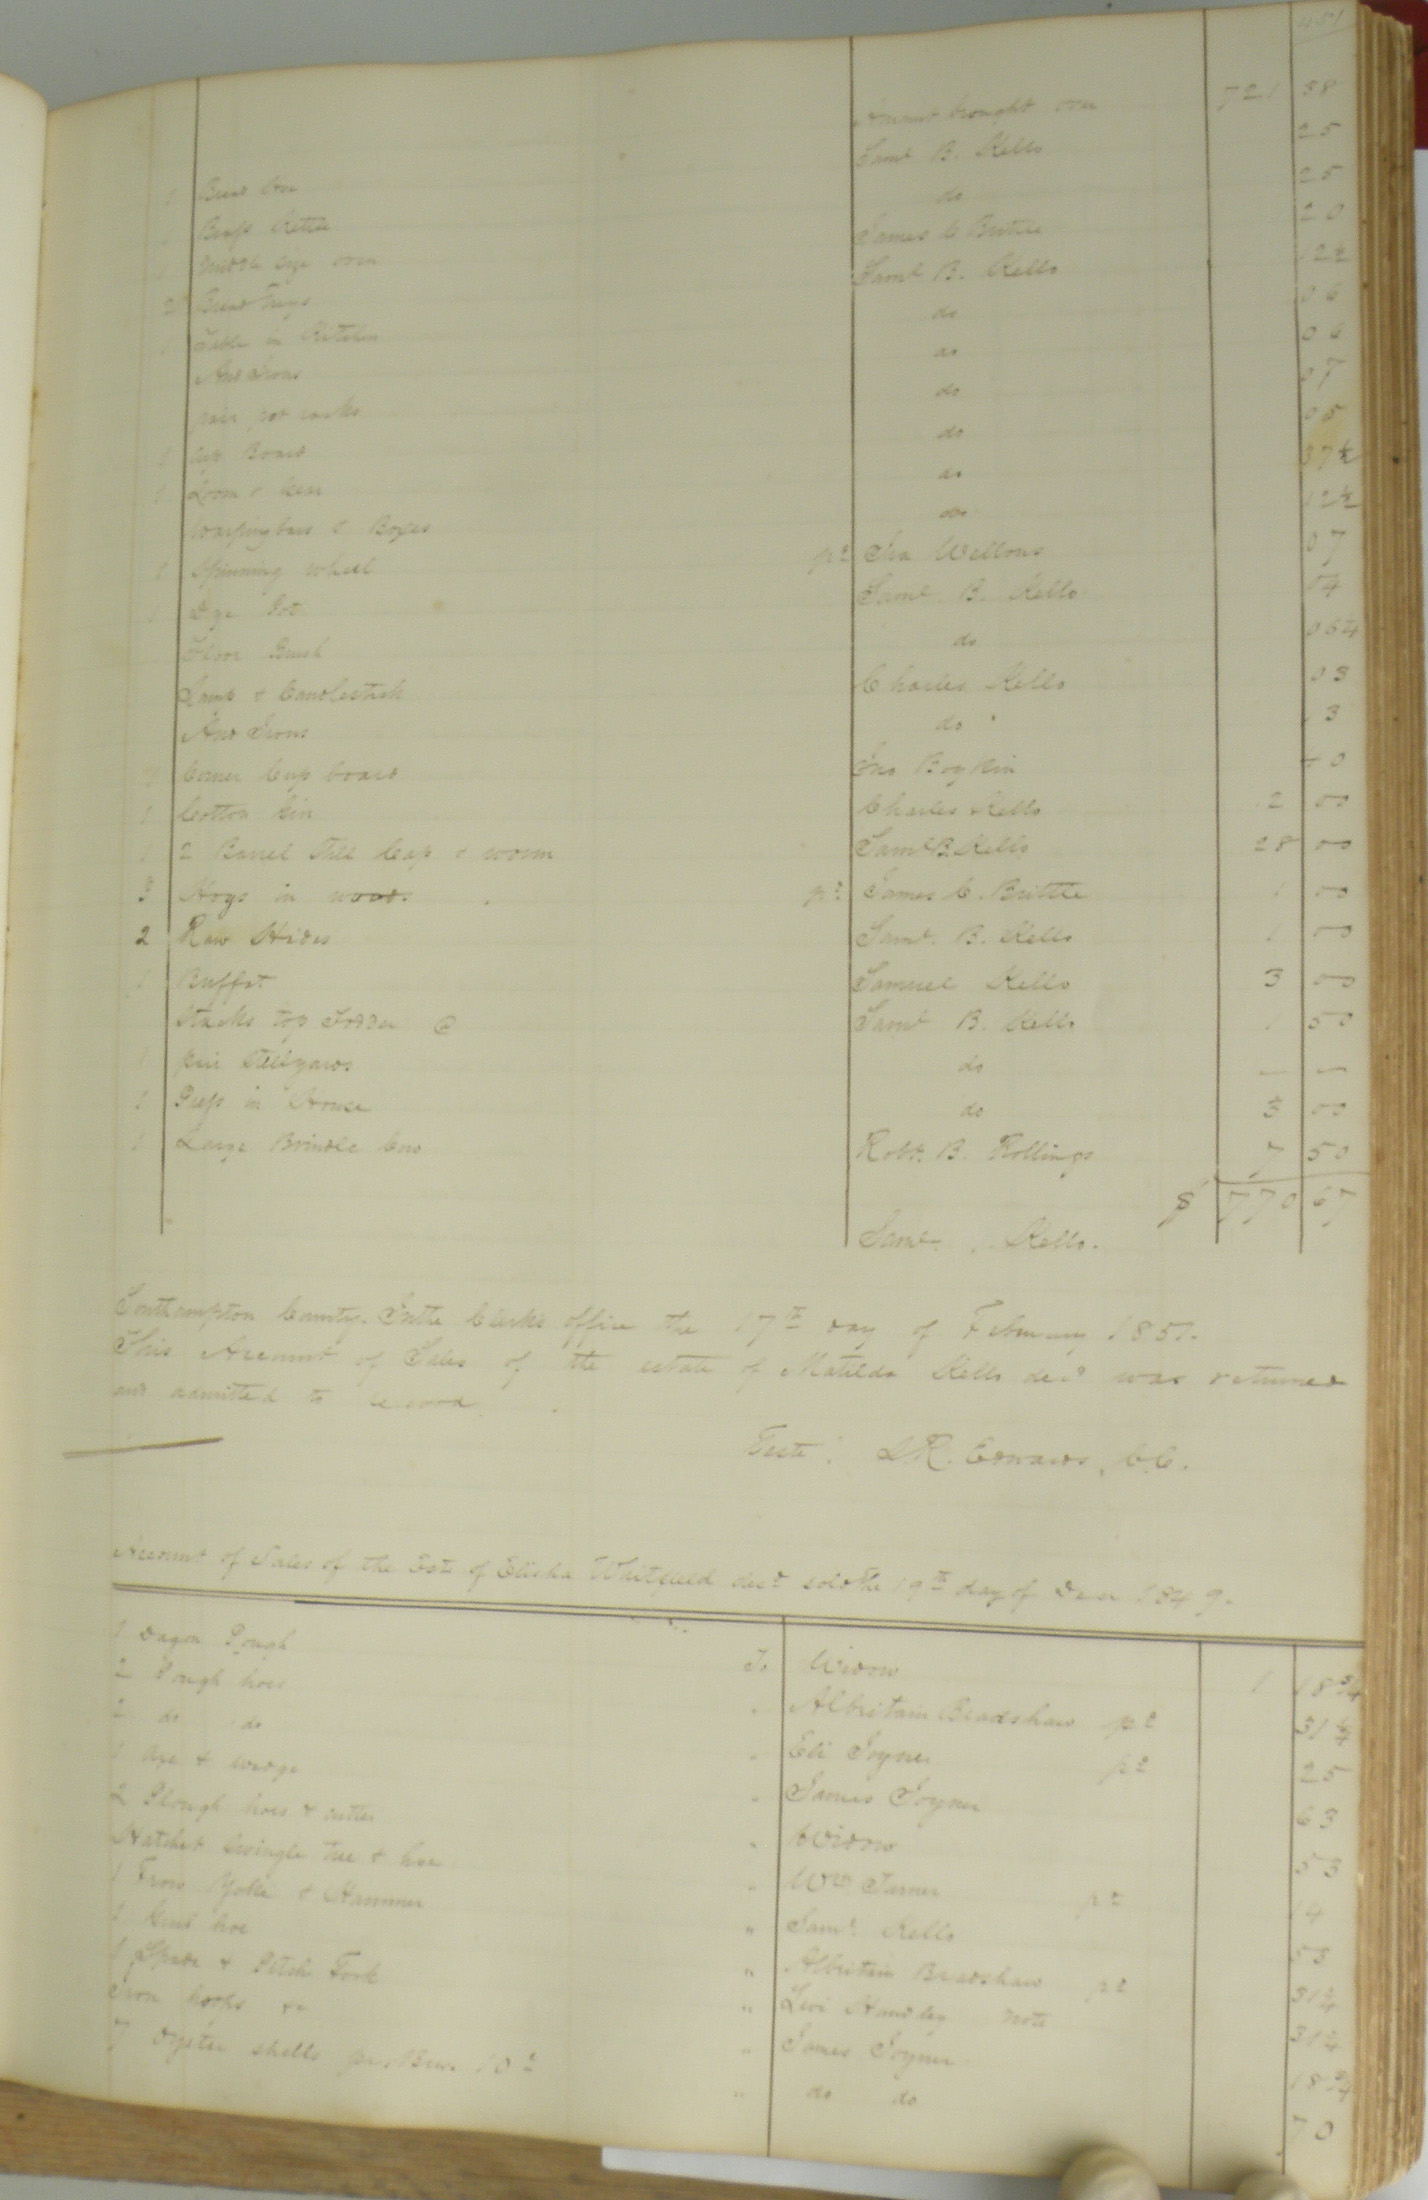 451
Amount brought over 721 58
1 Broad Axe Saml B. Kello 25
1 Brass Kettle do 25
1 Middle size oven James C Brittle 20
2 Bread Trays Saml B. Kello 12½
1 Table in Kitchen do 06
And Irons do 06
pair pot racks do 07
1 Cup Board do 05
1 Loom & Gear do 37½
Warping bars & Boxes do 12½
1 Spinning wheel pd Ira Wellons 07
1 Dye Pot Saml B. Kello 04
Floor Brush do 06¼
Lamp & Candlestick Charles Kello 03
And Irons do 13
1 Corner Cup board Jno Boykin 40
1 Cotton Gin Charles Kello 2 00
1 2 Barrel Still Cap & worm Saml B. Kello 28 00
3 Hogs in woods pd James C. Brittle 1 00
2 Raw Hides Saml. B. Kello 1 00
1 Buffet Samuel Kello 3 00
Stacks top Fodder @ Saml B. Kello 1 50
1 pair Stillyards do — —
1 Press in House do 3 00
1 Large Brindle Cow Robt. B. Rollings 7 50
$ 770 67
Saml. Kello.
Southampton County. In the Clerks office the 17th day of February 1851.
This Account of Sales of the estate of Matilda Kello decd was returned
and admitted to record
Teste: L R. Edwards, C.C.
Account of Sales of the Est. of Elisha Whitfield decd sold the 19th day of Decr 1849.
1 Dagon Plough To Widow 1 18¾
2 Plough hoes " Albritain Bradshaw pd 31¼
2 do do " Eli Joyner pd 25
1 Axe & wedge " James Joyner 63
2 Plough hoes & cutter " Widow 53
Hatchet Swingle tree & hoe " Wm Turner pd 14
1 Frow Yoke & Hammer " Saml Kello 53
1 Grub hoe " Albritain Bradshaw pd 31¼
1 Spade & Pitch Fork " Levi Handley note 31¼
Iron hooks &c " James Joyner 18¾
7 Oyster shells pr. Bus. 10c " do do 70